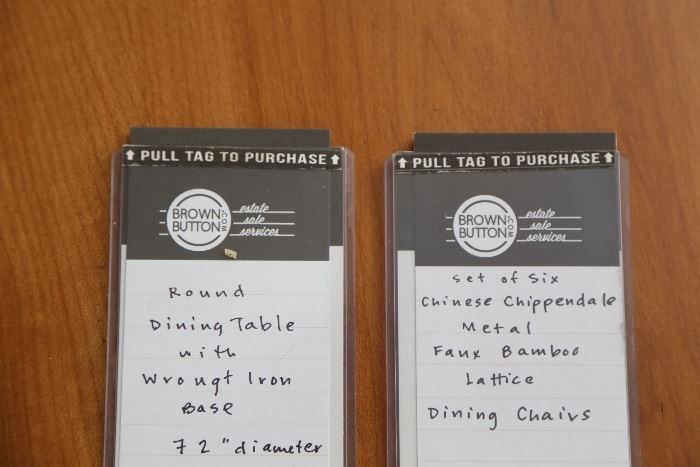 ↑ PULL TAG TO PURCHASE ↑
BROWN
BUTTON
.COM
estate
sale
services
Round
Dining Table
with
Wrougt Iron
Base
72" diameter
↑ PULL TAG TO PURCHASE ↑
BROWN
BUTTON
.COM
estate
sale
services
Set of Six
Chinese Chippendale
Metal
Faux Bamboo
Lattice
Dining Chairs